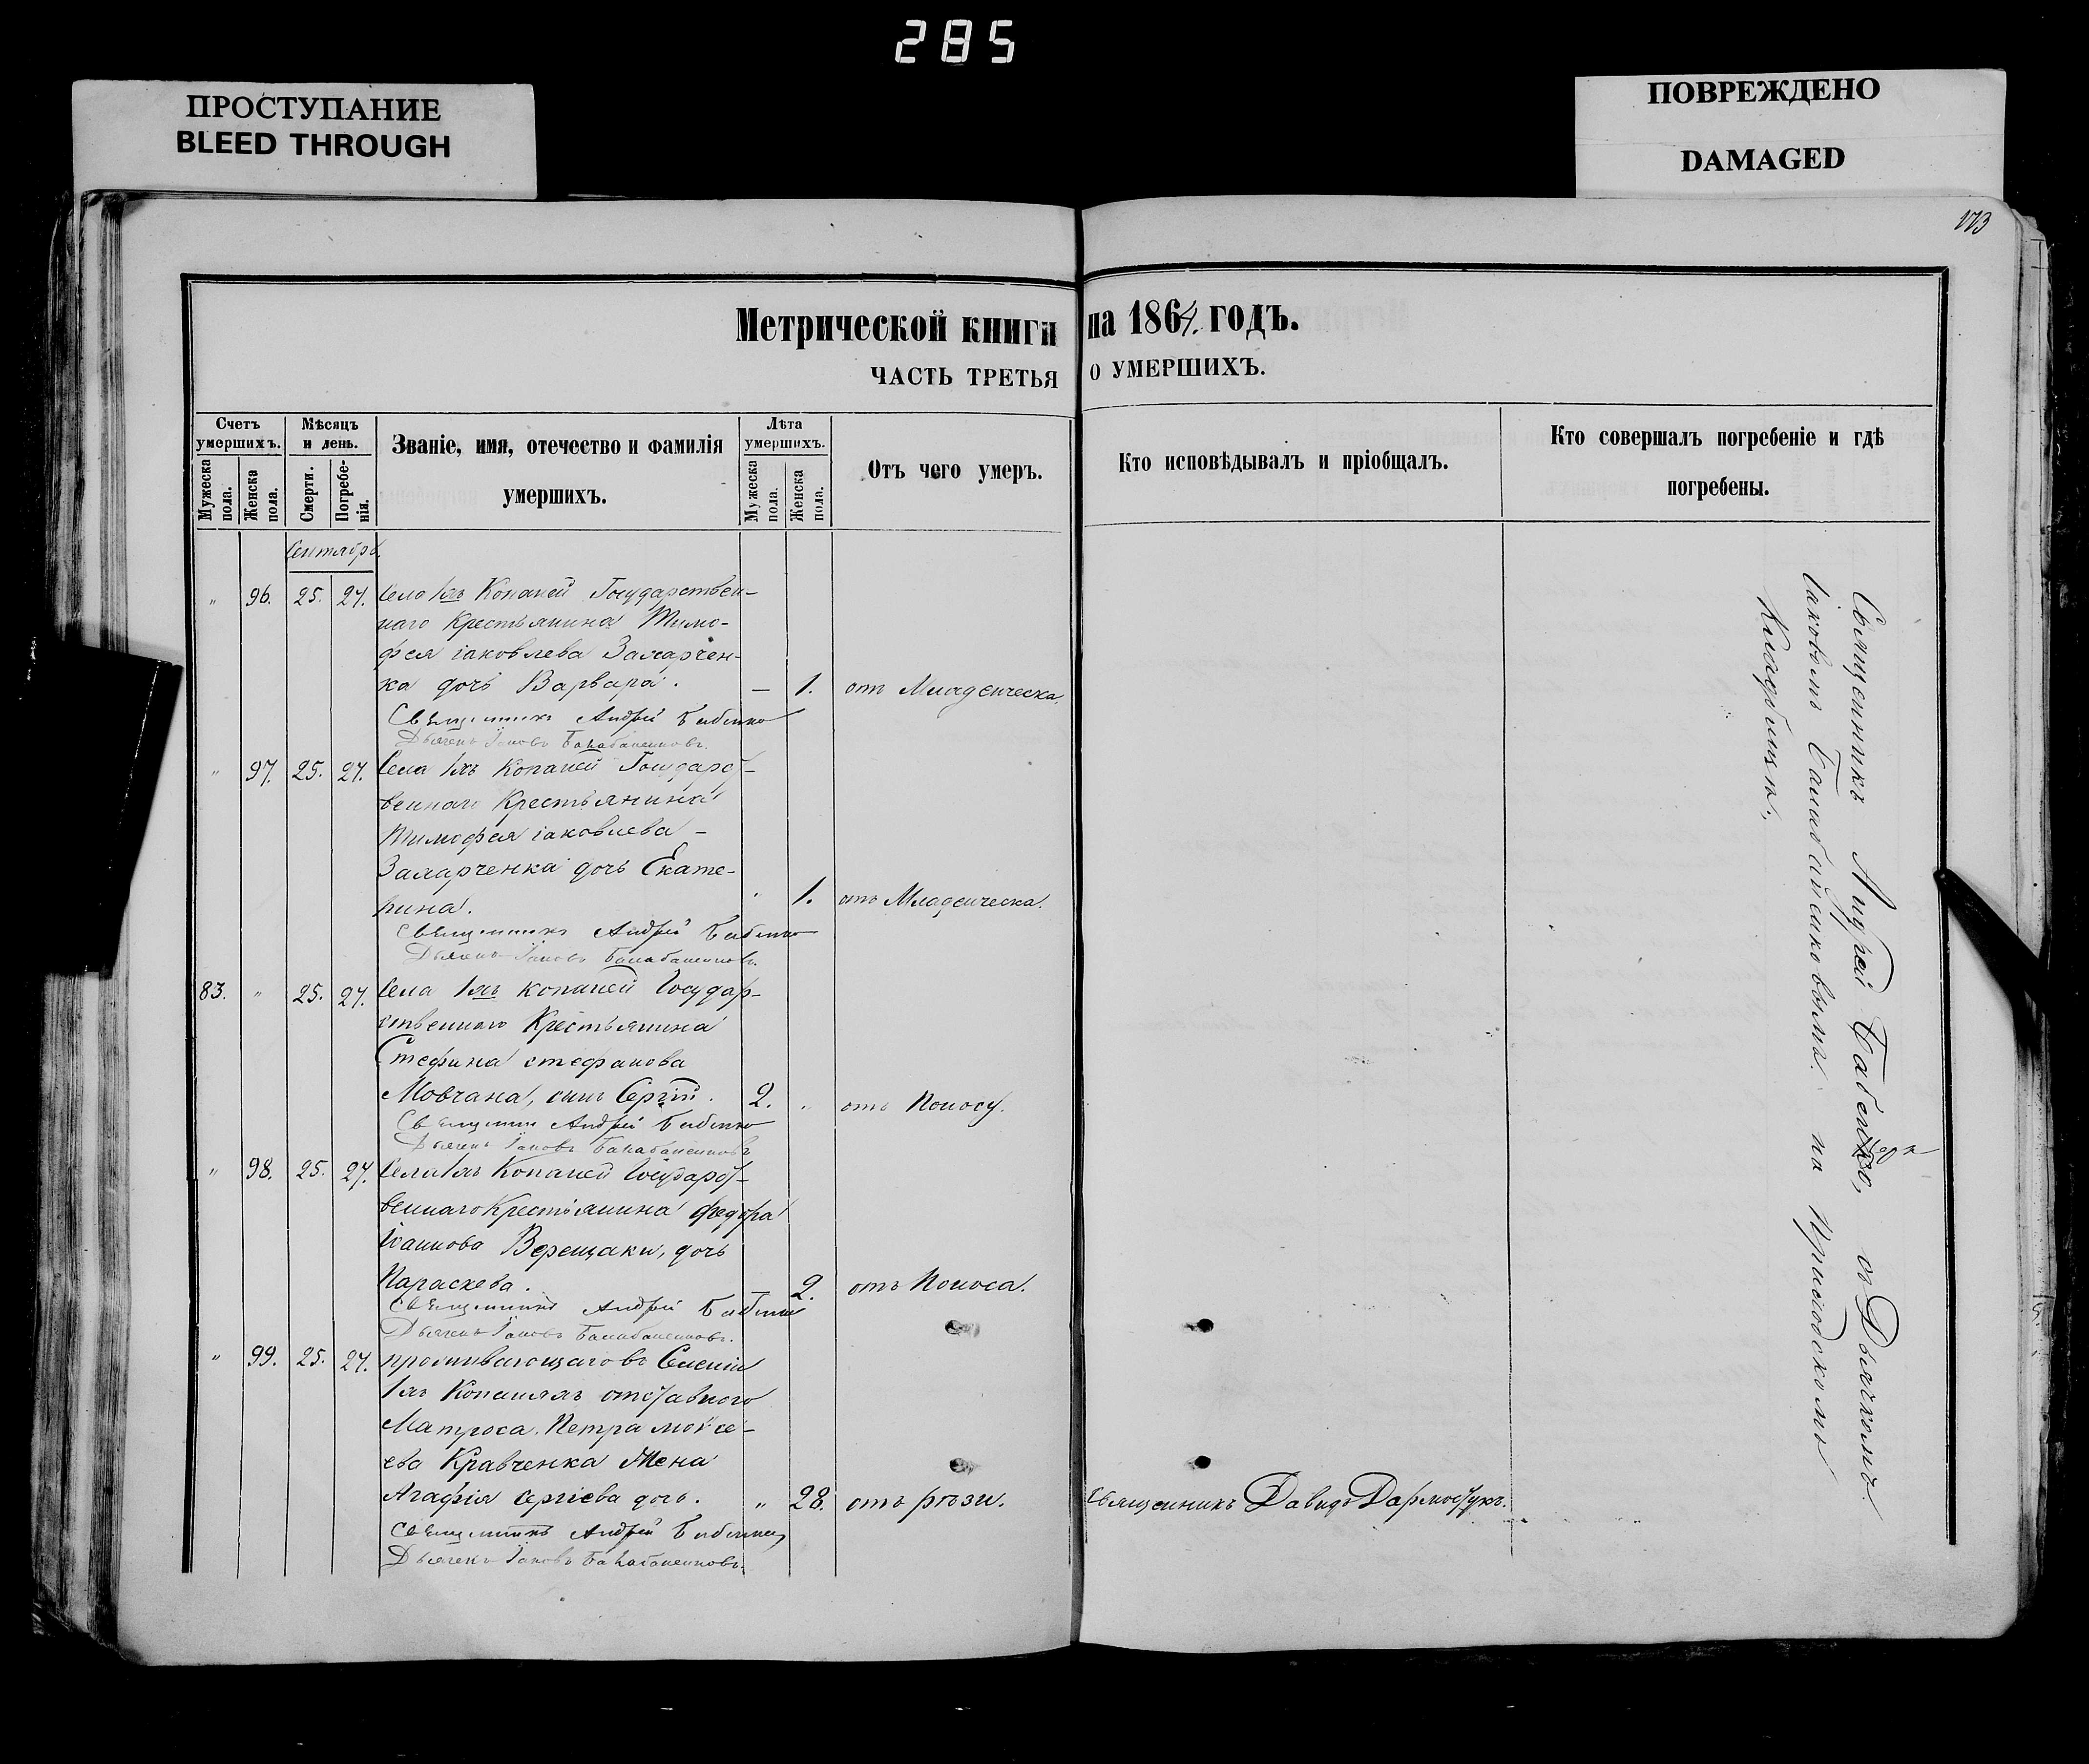 285
ПРОСТУПАНИЕ
BLEED THROUGH
ПОВРЕЖДЕНО
DAMAGED
173
Метрической книги на 1864. годъ.
ЧАСТЬ ТРЕТЬЯ О УМЕРШИХЪ.
Счетъ умершихъ.
Мужеска пола.
Женска пола.
Мѣсяцъ и день.
Смерти.
Погребенія.
Званіе, имя, отечество и фамилія умершихъ.
Лѣта умершихъ.
Мужеска пола.
Женска пола.
Отъ чего умеръ.
Кто исповѣдывалъ и пріобщалъ.
Кто совершалъ погребеніе и гдѣ погребены.
Сентябрь
„ 96. 25. 27. Села Копаней Государствен-
наго Крестьянина Тимо-
фея іаковлева Замарчен-
ка дочь Варвара. — 1. отъ Младенческа.
Священникъ Андрей Бабенко
Дьячекъ Іаковъ Балабаненковъ.
„ 97. 25. 27. Села Копаней Государст-
веннаго Крестьянина
Тимофея іаковлева –
Замарченка дочь Екате-
рина. „ 1. отъ Младенческа.
Священникъ Андрей Бабенко
Дьячекъ Іаковъ Балабаненковъ.
83. „ 25. 27. Села Копаней Государ-
ственнаго Крестьянина
Стефана стефанова
Мовчана, сынъ Сергій. 2. „ отъ Поносу.
Священник Андрей Бабенко
Дьячекъ Іаковъ Балабаненковъ
„ 98. 25. 27. Села Копаней Государст-
веннаго Крестьянина федора
Іоаннова Верещаки, дочь
Параскева. — 2. отъ Поноса.
Священникъ Андрей Бабенко
Дьячекъ Іаковъ Балабаненковъ.
„ 99. 25. 27. проживающаго въ Селеніи
Копаняхъ отставного
Матроса Петра моисе-
ева Кравченка Жена
Агафія сергіева дочь. „ 28. отъ рѣзи. Священникъ Давидъ
Священникъ Андрей Бабенко
Дьячекъ Іаковъ Балабаненковъ.
Священникъ Андрей Бабенко, съ Дьячкомъ
Іаковомъ Балабаненковымъ. на Приходскомъ
Кладбищѣ.